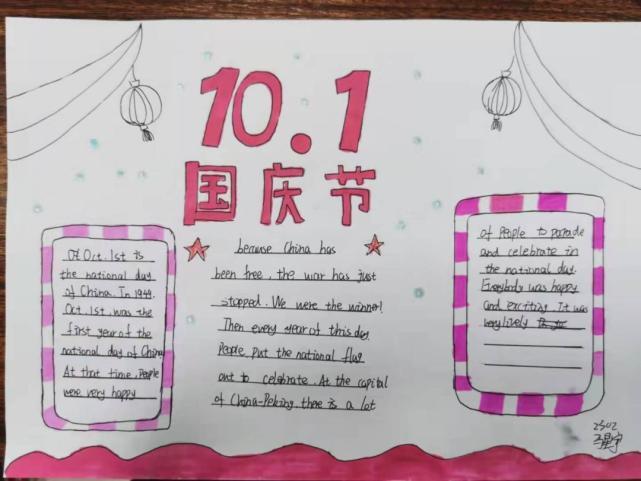 10.1
国庆节
Of Oct. 1st is
the national day
of China. In 1949.
Oct. 1st. was the
first year of the
national day of China
At that time, People
were very happy
because China has
been free, the war has just
stopped. We were the winner!
Then every year of this day
People put the national flag
out to celebrate. At the capital
of China-Peking. there is a lot
of People to parade
and celebrate in
the national day.
Everybody was happy
and exciting. It was
very lively
2502